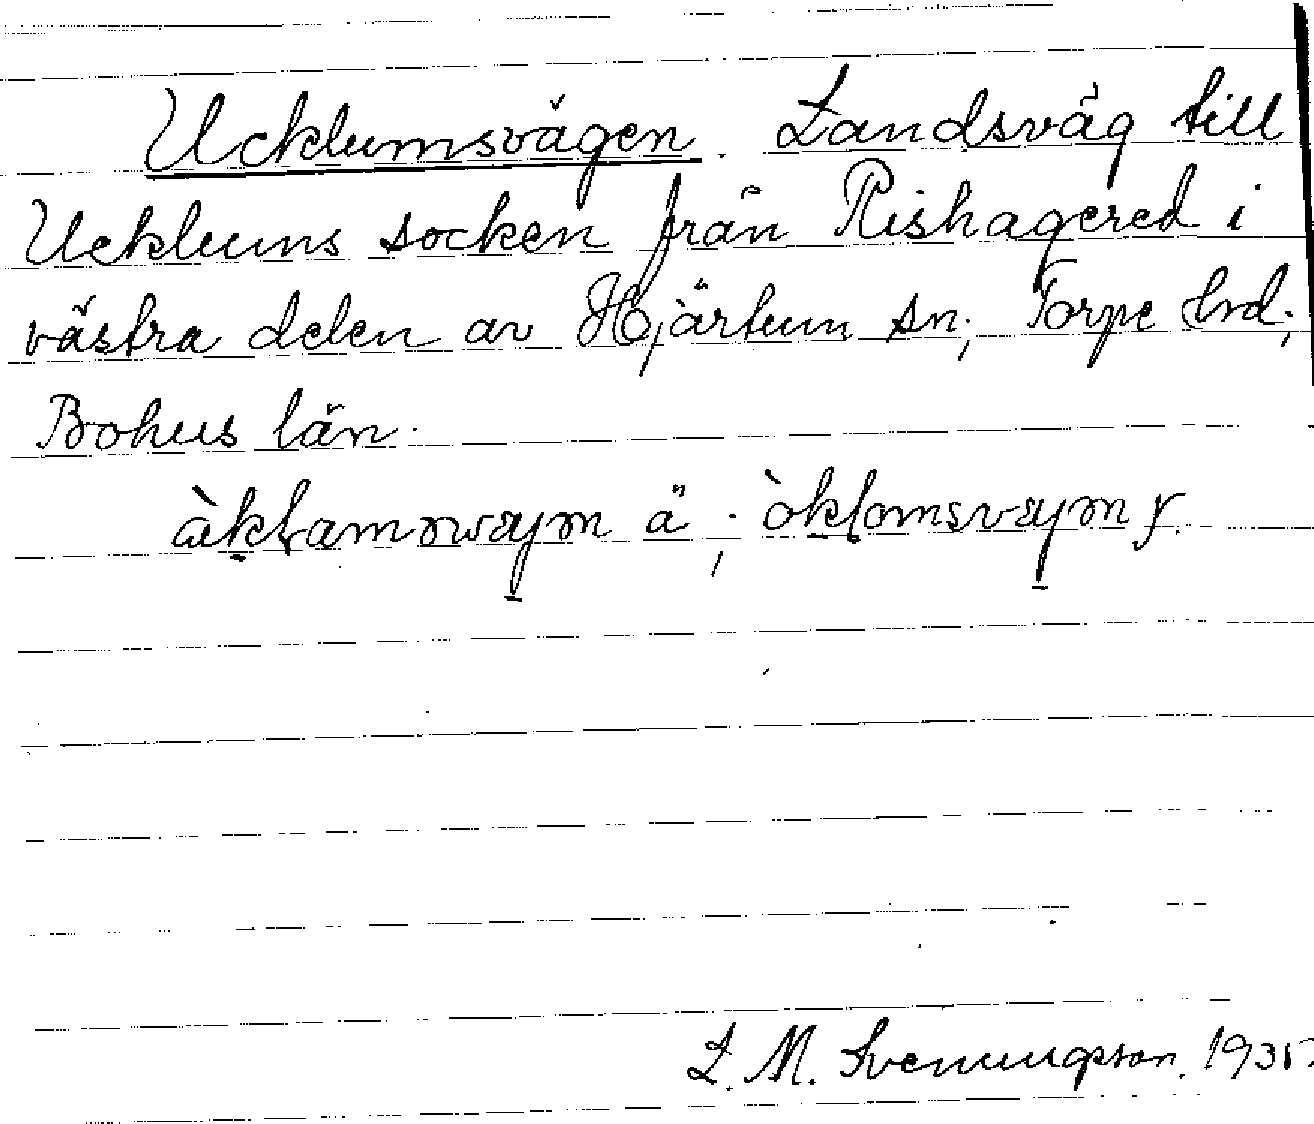 Ucklumsvägen. Landsväg till
Ucklums socken från Rishagered i
västra delen av Hjärtum sn, Torpe hrd,
Bohus län.
ä ; y.
L. M. Svenungsson. 1935